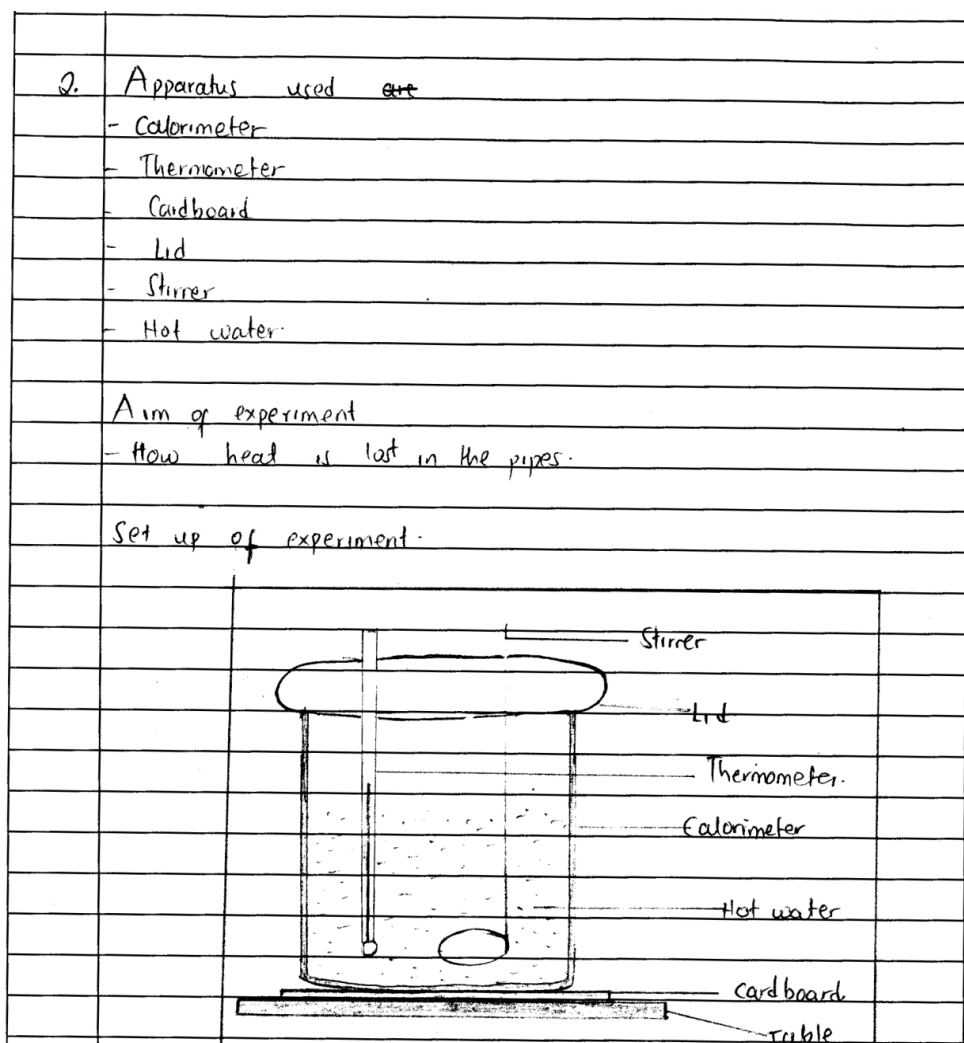 2. Apparatus used are
- Calorimeter
- Thermometer
- Cardboard
- Lid
- Stirrer
- Hot water.
Aim of experiment
- How heat is lost in the pipes.
Set up of experiment.
Stirrer
Lid
Thermometer.
Calorimeter
Hot water
cardboard
Table